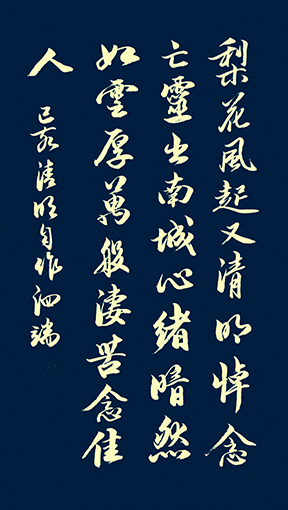 梨花風起又清明悼念
亡靈出南城心緒暗然
如雲厚萬般淒苦念佳
人 己亥清明自作 泗端